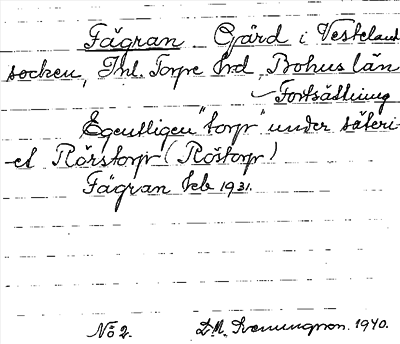 Fägran Gård i Vesteland
socken, Inl. Torpe hrd, Bohus län
Fortsättning
Egentligen "torp" under säteri-
et Rörstorp (Röstorp)
Fägran beb 1931.
No 2.
1940.